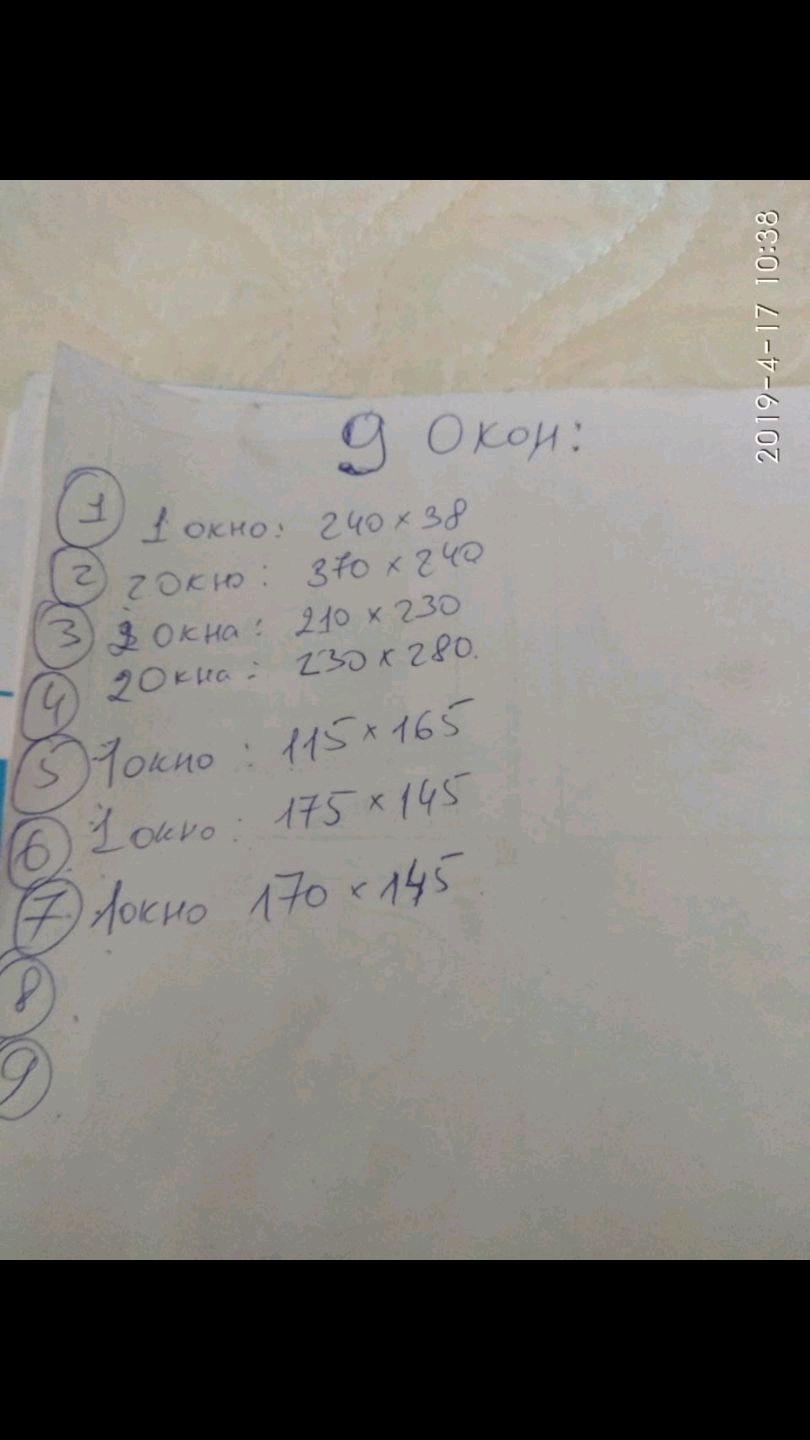 2019-4-17 10:38
9 Окон:
1 1 окно: 240 x 38
2 2 окно: 370 x 240
3 2 окна: 210 x 230
4 2 окна: 230 x 280.
5 1 окно: 115 x 165
6 1 окно: 175 x 145
7 1 окно 170 x 145
8
9